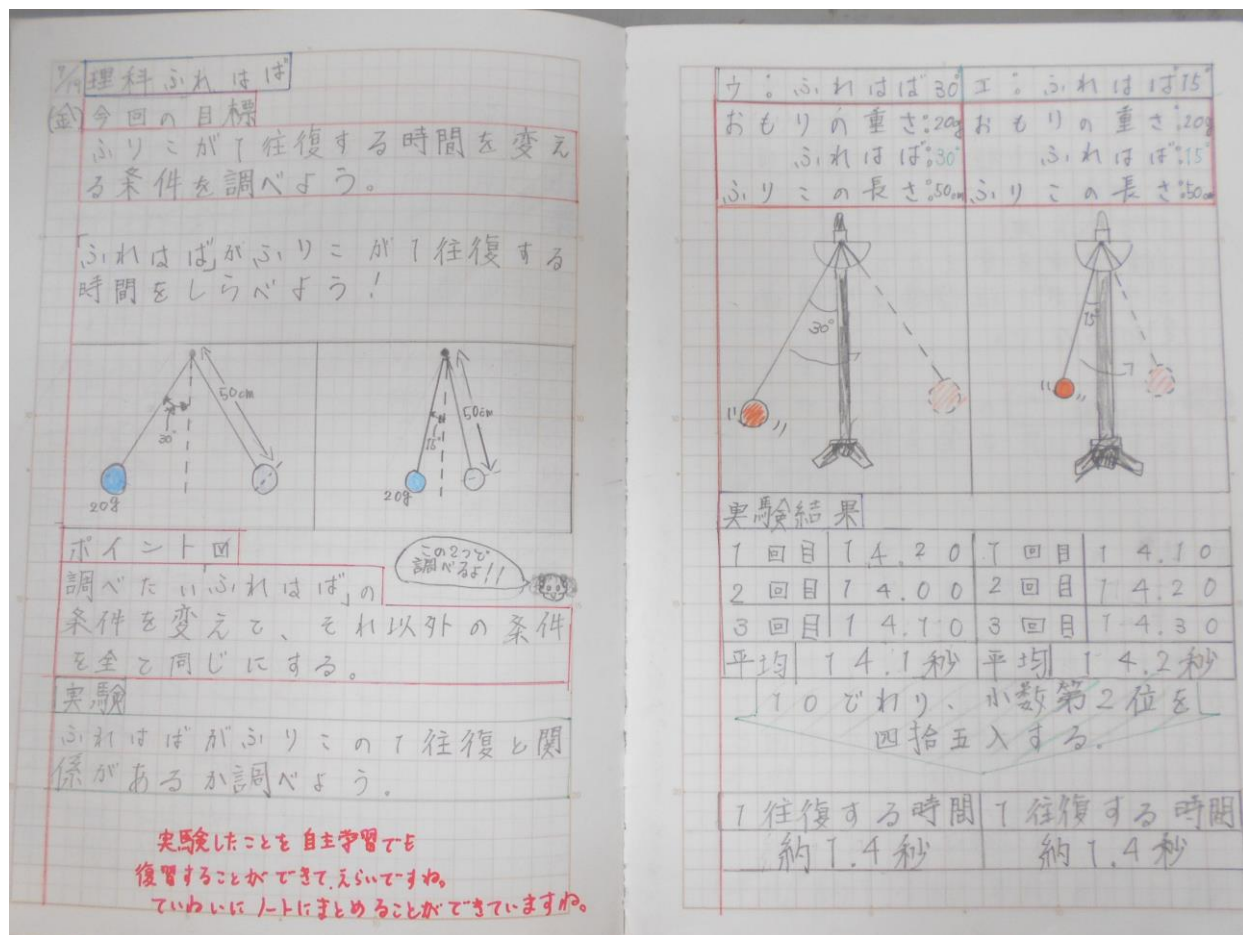 7/19 理科ふれはば
(金) 今回の目標
ふりこが1往復する時間を変え
る条件を調べよう。
「ふれはば」がふりこが1往復する
時間をしらべよう!
50cm
30°
20g
50cm
15°
20g
ポイント
この2つで
調べるよ!!
調べたい「ふれはば」の
条件を変えて、それ以外の条件
を全て同じにする。
実験
ふれはばがふりこの1往復と関
係があるか調べよう。
実験したことを自主学習でも
復習することができて、えらいですね。
ていねいにノートにまとめることができていますね。
ウ:ふれはば30° エ:ふれはば15°
おもりの重さ:20g おもりの重さ:20g
ふれはば:30° ふれはば:15°
ふりこの長さ:50cm ふりこの長さ:50cm
30°
15°
実験結果
1回目 14.20 1回目 14.10
2回目 14.00 2回目 14.20
3回目 14.10 3回目 14.30
平均 14.1秒 平均 14.2秒
10でわり、小数第2位を
四拾五入する。
1往復する時間 1往復する時間
約1.4秒 約1.4秒